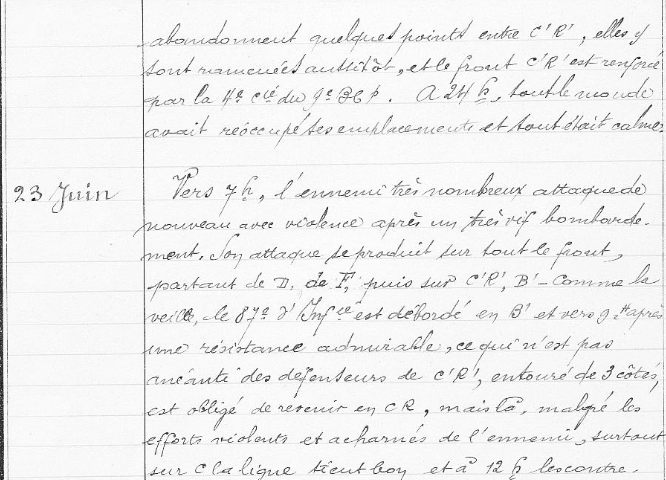 abandonnent quelques points entre C'R', elles y
sont ramenées aussitôt, et le front C'R' est renforcé
par la 4e Cie du 9e BCp. A 24 h, tout le monde
avait réoccupé ses emplacements et tout était calme.
23 Juin
Vers 7h, l'ennemi très nombreux attaque de
nouveau avec violence après un très vif bombarde-
ment. Son attaque se produit sur tout le front,
partant de D. de F, puis sur C'R', B' - Comme la
veille, le 87e d'Infie est débordé en B' et vers 9 H après
une résistance admirable, ce qui n'est pas
anéanti des défenseurs de C'R', entouré de 3 côtés,
est obligé de revenir en CR, mais là, malgré les
efforts violents et acharnés de l'ennemi, surtout
sur C la ligne tient bon et à 12 h les contre-